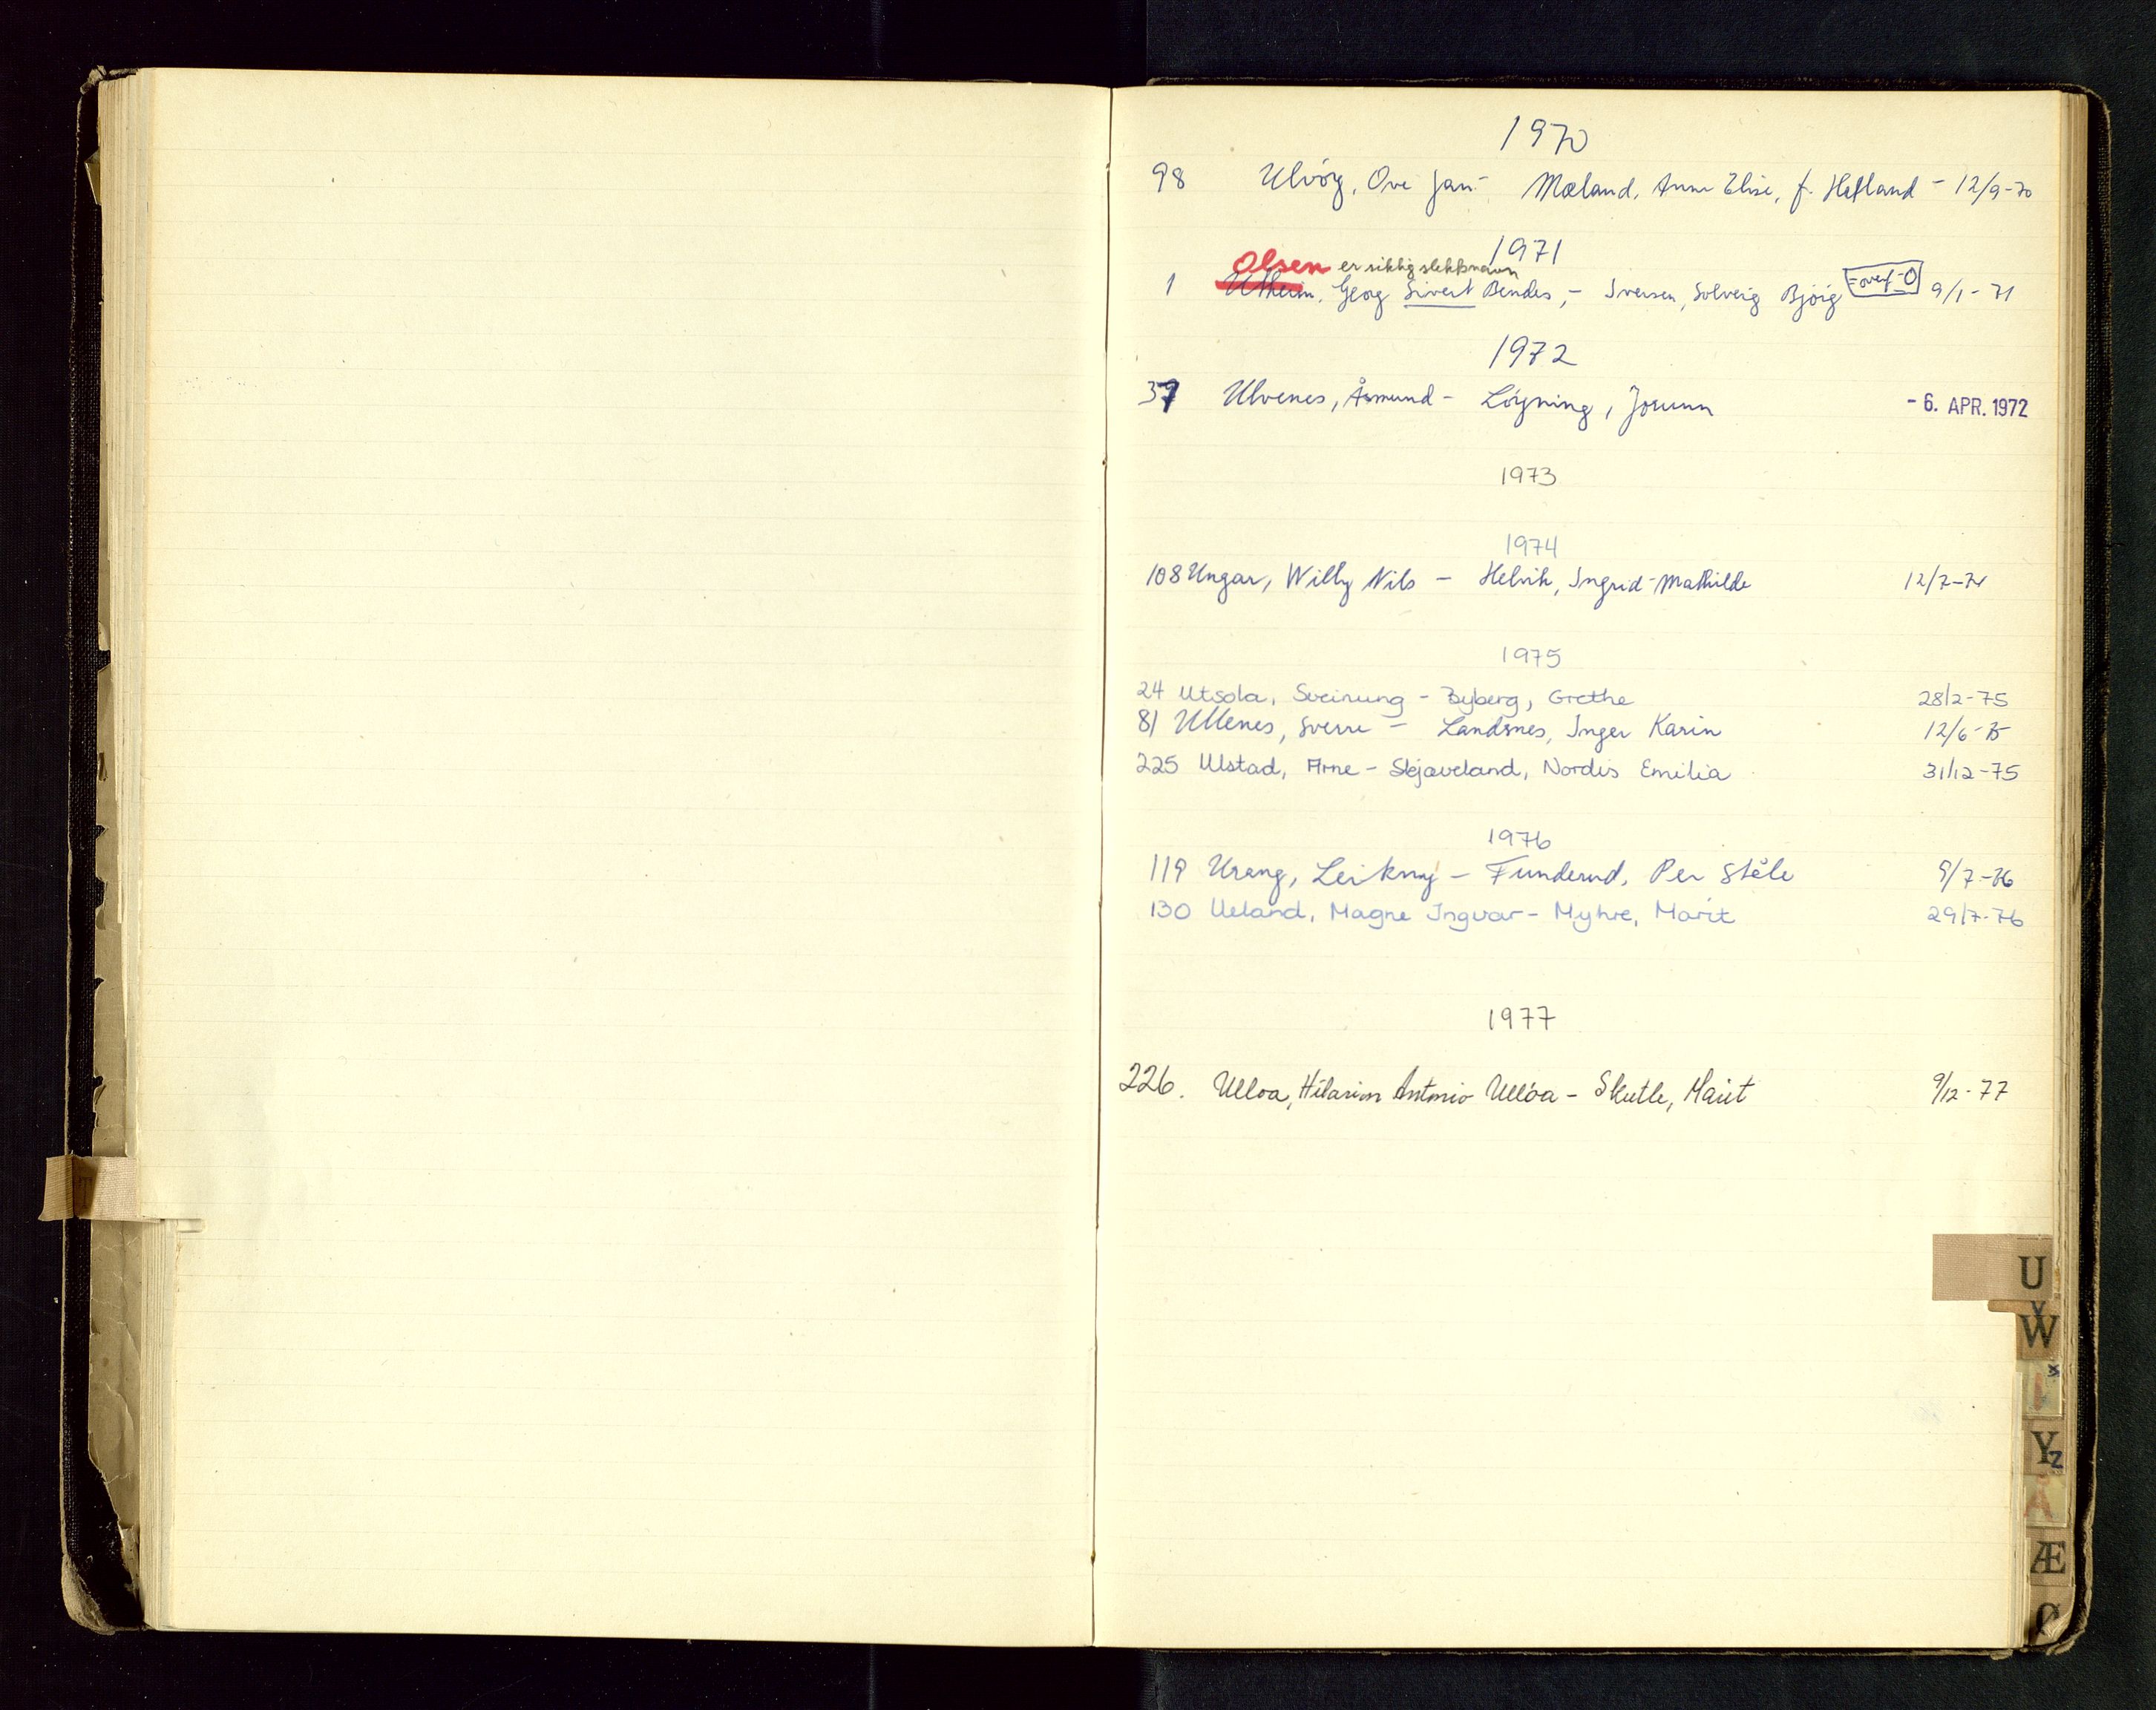 1970
98 Ulvøy, Ove Jan - Mæland, Anne Elise, f. Hefland - 12/9-70
1971
Olsen er riktig slektsnavn
1 Utheim, Georg Sivert Bendes, - Iversen, Solveig Bjørg =overf-O 9/1-71
1972
37 Ulvenes, Åsmund - Løyning, Jorunn - 6. APR. 1972
1973
1974
108 Ungar, Willy Nils - Helvik, Ingrid Mathilde 12/7-74
1975
24 Utsola, Sveinung - Byberg, Grethe 28/2-75
81 Ullenes, Sverre - Landsnes, Inger Karin 12/6-75
225 Ulstad, Arne - Skjæveland, Nordis Emilia 31/12-75
1976
119 Urang, Leikny - Funderud, Per Ståle 9/7-76
130 Ueland, Magne Ingvar - Myhre, Marit 29/7-76
1977
226. Ulloa, Hilarion Antonio Ullóa - Skutle, Marit 9/12-77
T
U
V
W
X
Y
Z
Å
Æ
Ø